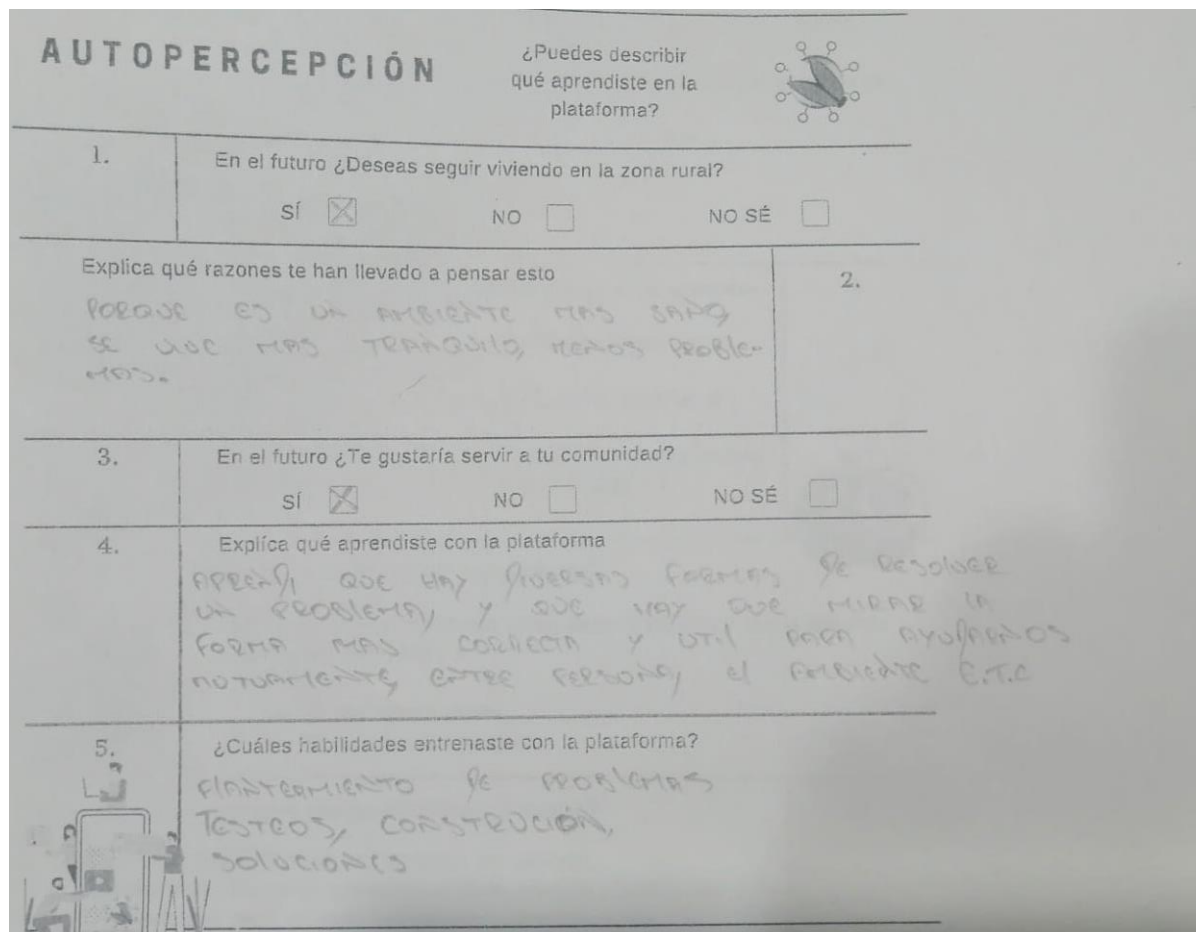 AUTOPERCEPCIÓN
¿Puedes describir
qué aprendiste en la
plataforma?
1.
En el futuro ¿Deseas seguir viviendo en la zona rural?
SÍ NO NO SÉ
Explica qué razones te han llevado a pensar esto
2.
PORQUE ES UN AMBIENTE MAS SANO,
SE VIVE MAS TRANQUILO, MENOS PROBLE-
MAS.
3.
En el futuro ¿Te gustaría servir a tu comunidad?
SÍ NO NO SÉ
4.
Explica qué aprendiste con la plataforma
APRENDI QUE HAY DIVERSAS FORMAS DE RESOLVER
UN PROBLEMA, Y QUE HAY QUE MIRAR LA
FORMA MAS CORRECTA Y UTIL PARA AYUDARNOS
MOTUAMENTE, ENTRE PERSONAS, el AMBIENTE E.T.C
5.
¿Cuáles habilidades entrenaste con la plataforma?
PLANTEAMIENTO DE PROBLEMAS
TESTEOS, CONSTRUCIÓN,
SOLUCIONES